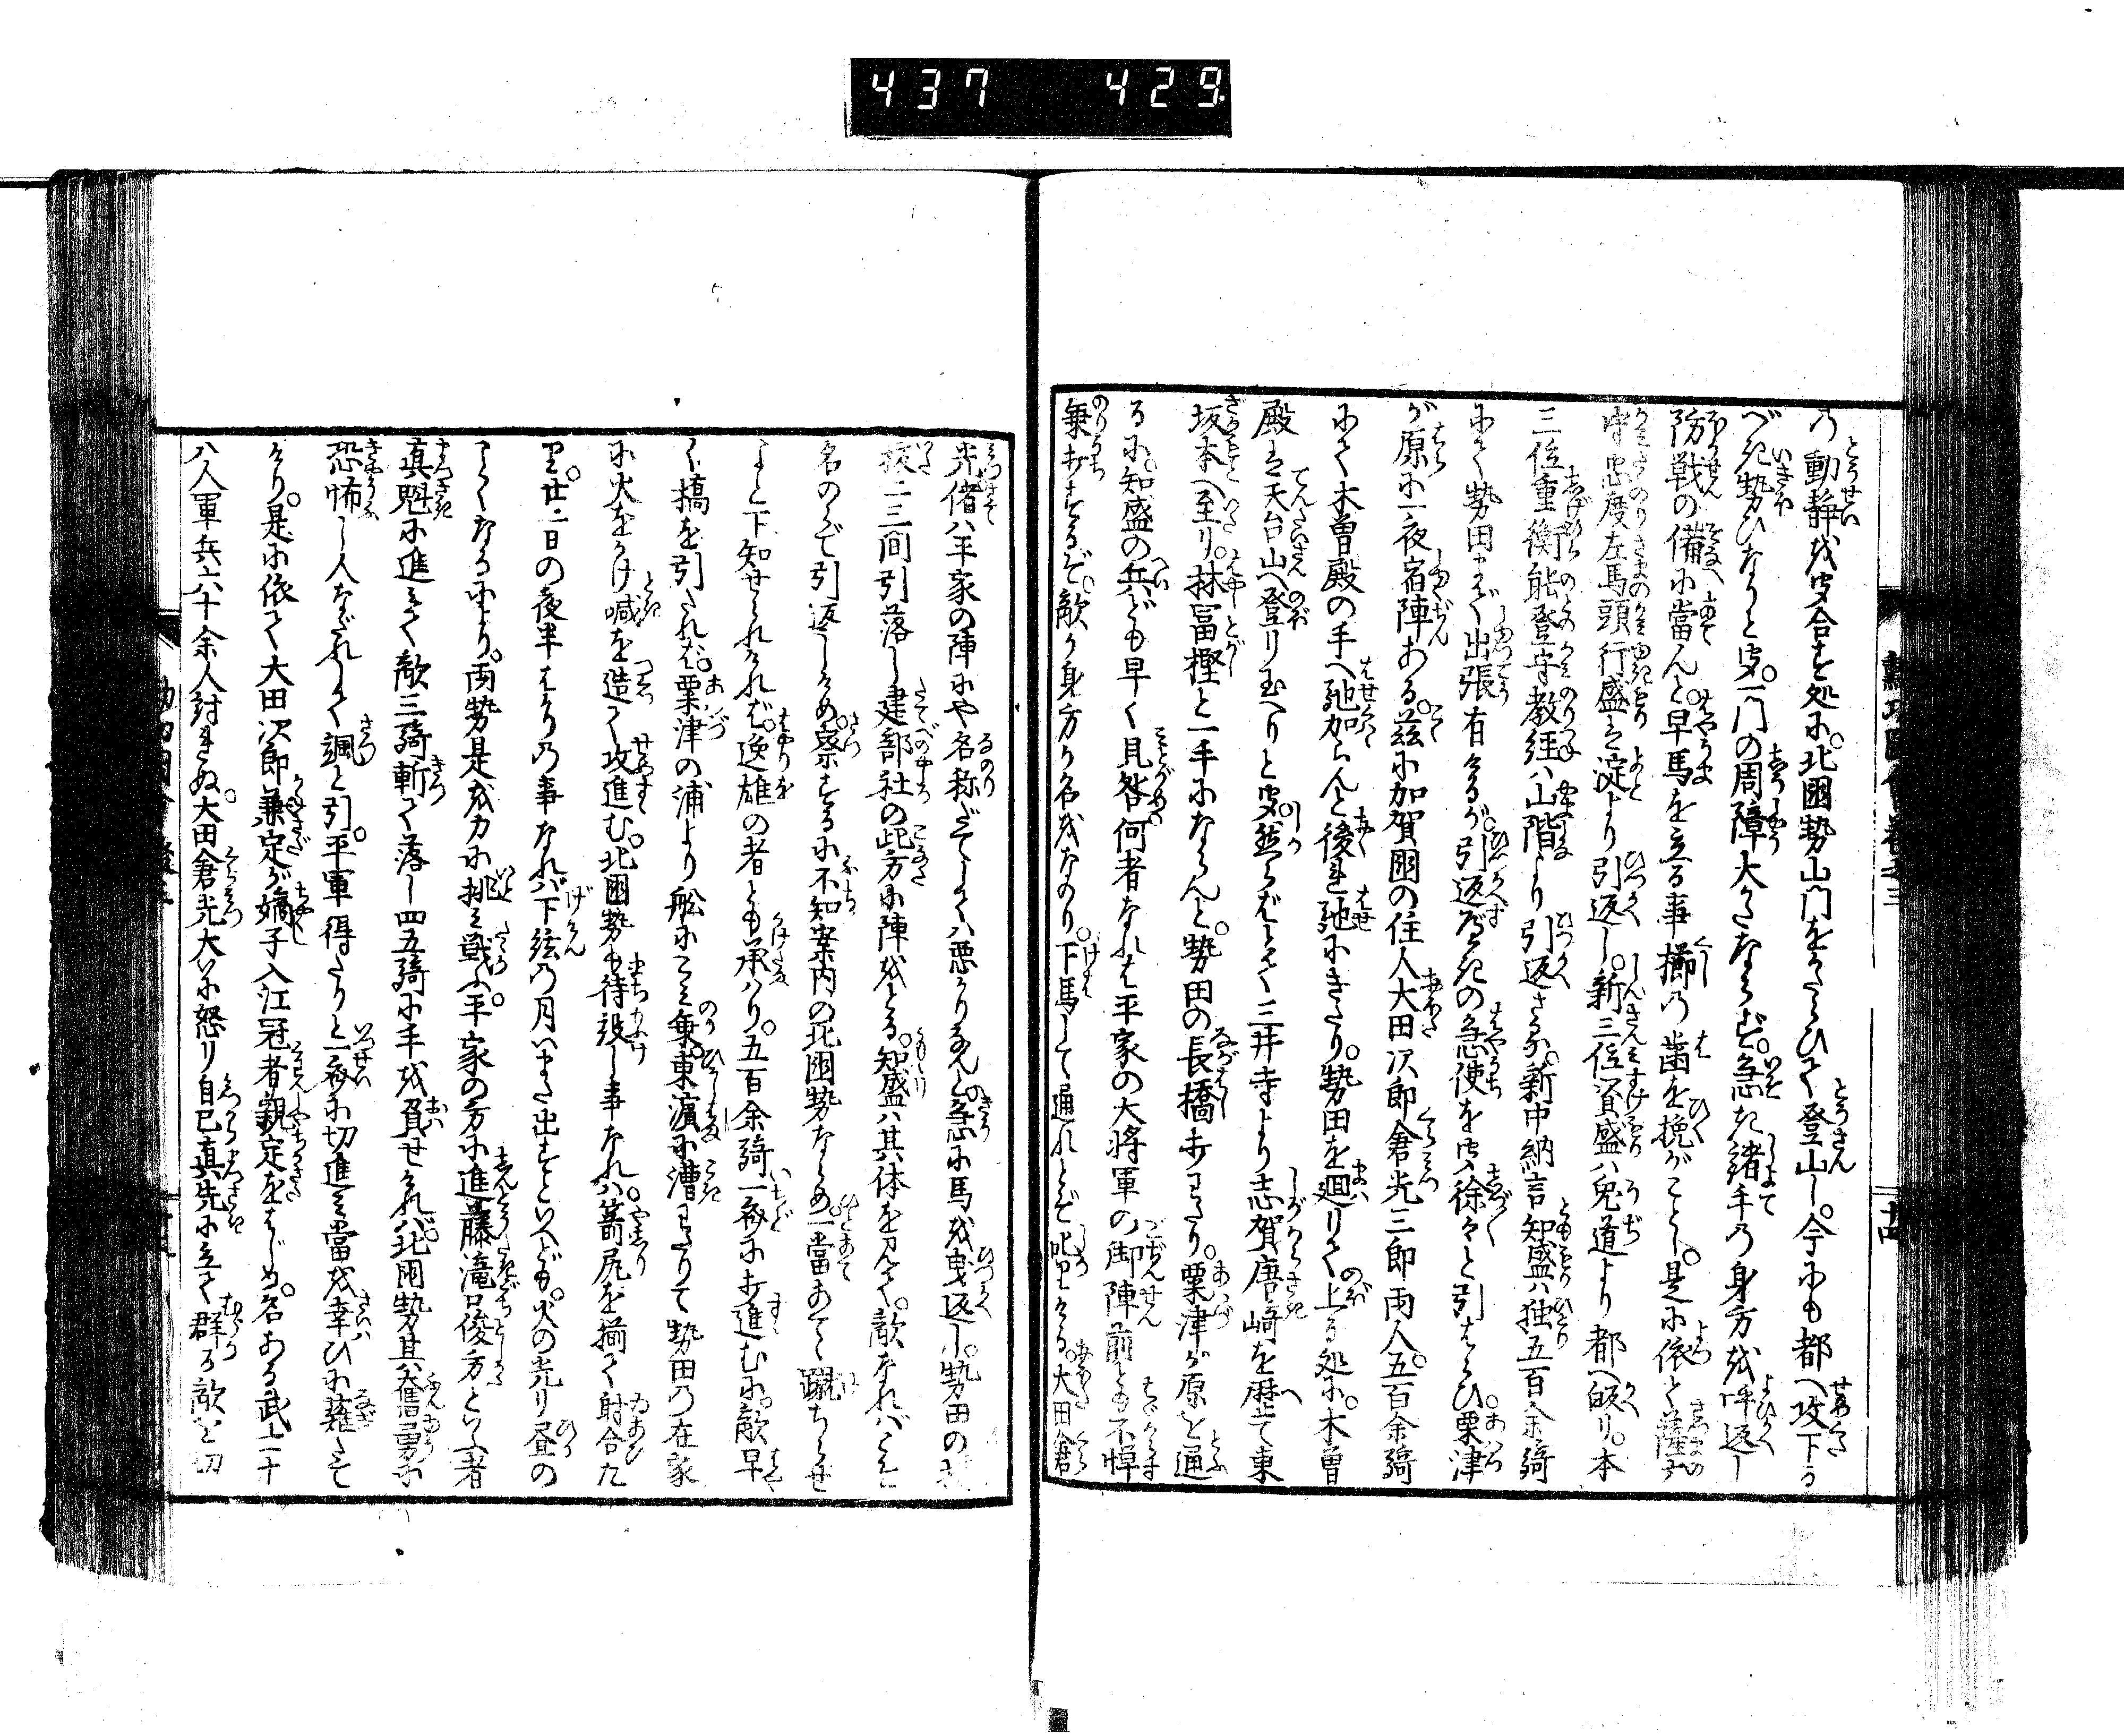 437 429
の動静を聞合す処に。北国勢山門をかたらひて登山し。今にも都へ攻下る
べき勢ひなりと聞。一門の周障大かたならず。急ぎ諸手の身方を呼返し
防戦の備に當んと。早馬を立る事櫛の歯を挽がごとし。是に依て薩广
守忠度左馬頭行盛は淀より引返し。新三位資盛ハ兎道より都へ皈り。本
三位重衡能登守教経ハ山階より引返さる。新中納言知盛ハ独五百余騎
にて勢田まで出張有けるが。引返すべきの急使を聞。徐々と引はらひ。粟津
が原に一夜宿陣ある。茲に加賀国の住人大田次郎倉光三郎両人。五百余騎
にて木曽殿の手へ馳加らんと後れ馳にきたり。勢田を廻りて上る処に。木曽
殿は天台山へ登り玉へりと聞。然らばとて三井寺より志賀唐崎を歴て東
坂本へ至り。林冨樫と一手にならんと。勢田の長橋打わたり。粟津が原を通
るに。知盛の兵ども早く見咎。何者なれば平家の大将軍の御陣前とも不憚
乗打するぞ。敵か身方か名をなのり。下馬して通れとぞ叱りける。大田倉
光偖ハ平家の陣にや名称だてしてハ悪かりなんと。急に馬を曳返し。勢田の
板二三間引落し建部社の此方に陣をとる。知盛ハ其体を見て。敵なればこそ
名のらで引返しらめ。察するに不知案内の北国勢ならめ。一當あてゝ蹴ちらせ
よと下知せられければ。逸雄の者とも承ハり。五百余騎一手に打進むに。敵早
く搞を引たれば。粟津の浦より舩にこみ乗。東濵に漕わたりて勢田の在家
に火をかけ喊を造て攻進む。北国勢も待設し事なれハ。箭尻を揃て射合た
り。廿二日の夜半はかりの事なれバ。下弦の月いまた出ずといへども。火の光リ昼の
ことくなるにより。両勢是を力に挑み戦ふ。平家の方に進藤滝口俊方といふ者
真魁に進みて敵三騎斬て落し四五騎に手を負せければ。北国勢其奮勇に
恐怖し人なだれして颯と引。平軍得たりと一斉に切進み當を幸ひに薙たて
けり。是に依て大田次郎兼定が嫡子入江冠者親定をはじめ。名ある武士二十
八人軍兵六十余人討れぬ。大田倉光大いに怒リ自己真先に立て群る敵を切